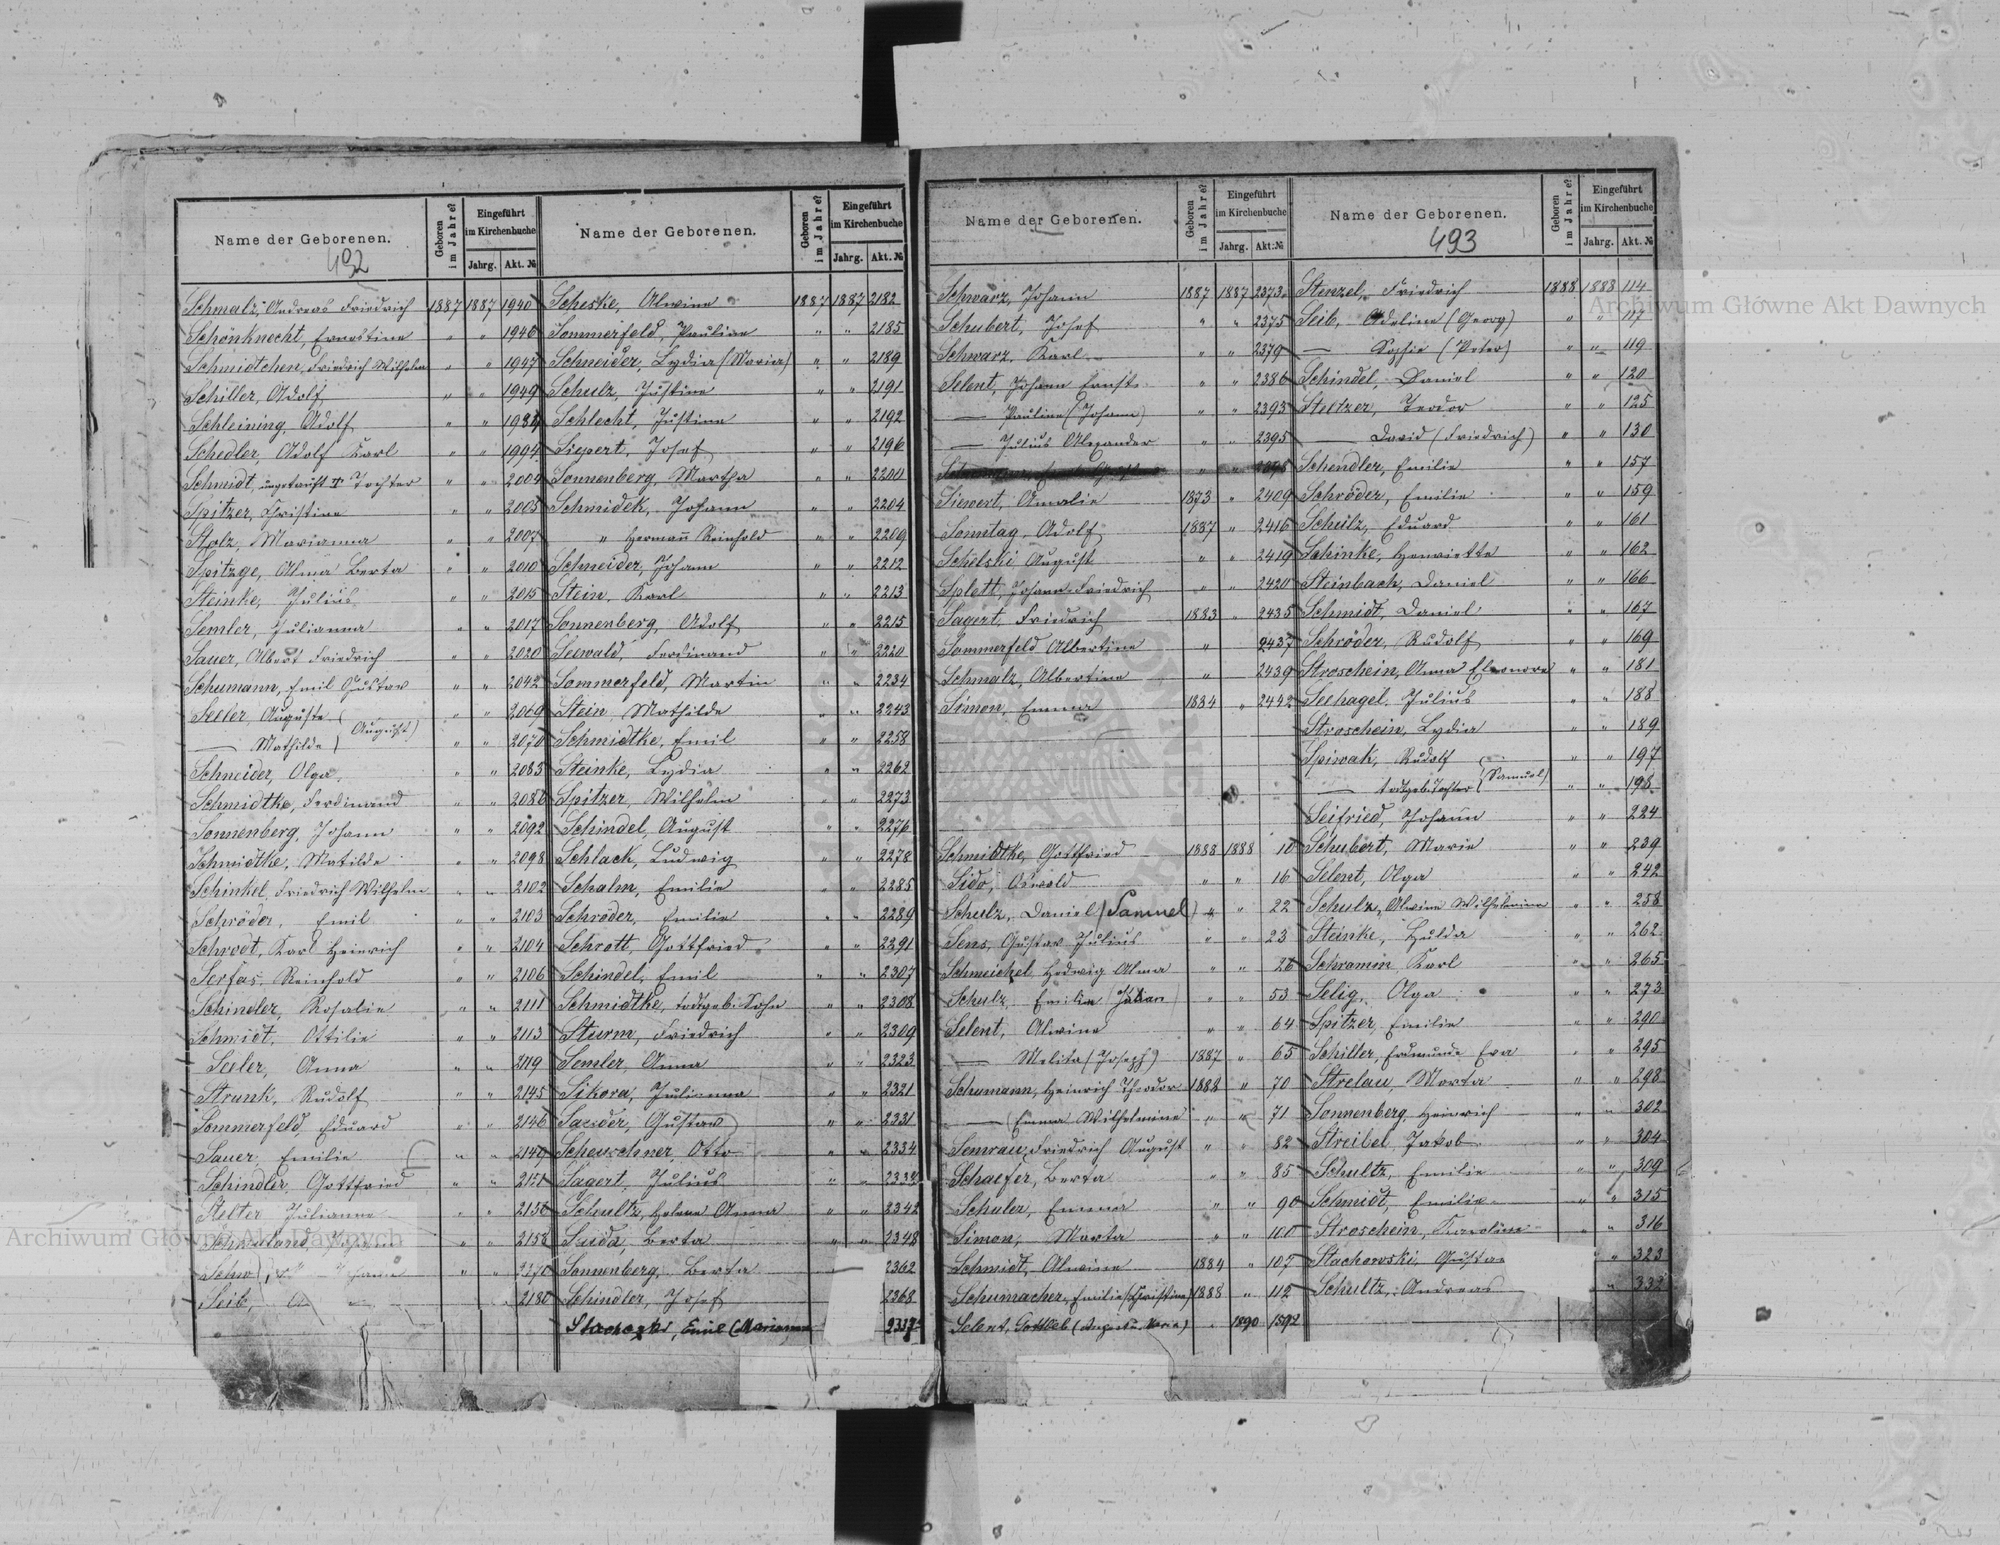 Name der Geborenen.
Geboren im Jahre?
Eingeführt im Kirchenbuche
Jahrg. Akt. №
Name der Geborenen.
Geboren im Jahre?
Eingeführt im Kirchenbuche
Jahrg. Akt. №
492
Schmalz, Andreas Friedrich 1887 1887 1940
Schönknecht, Ernestine " " 1946
Schmidtchen, Friedrich Wilhelm " " 1947
Schiller, Adolf " " 1949
Schleining, Adolf " "
Schedler, Adolf Karl " " 1994
Schmidt, ungetauft Tochter " " 2004
Spitzer, Christine " " 2005
Stolz, Marianna " " 2007
Spitzge, Alma Berta " " 2010
Steinke, Julius " " 2015
Semler, Julianna " " 2017
Sauer, Albert Friedrich " " 2020
Schumann, Emil Gustav " " 2042
Seller, Auguste (August) " " 2069
— Mathilde " " 2070
Schneider, Olga " " 2083
Schmidtke, Ferdinand " " 2086
Sonnenberg, Johann " " 2092
Schmidtke, Matilde " " 2098
Schinkel, Friedrich Wilhelm " " 2102
Schröder, Emil " " 2103
Schrodt, Karl Heinrich " " 2104
Serfas, Reinhold " " 2106
Schindler, Rosalie " " 2111
Schmidt, Ottilie " " 2113
Seiler, Anna " " 2119
Strunk, Rudolf " " 2145
Sommerfeld, Eduard " " 2146
Sauer, Emilie " " 2149
Schindler, Gottfried " "
Stelter Julianne " " 2156
" " 2158
" " 2170
Seib, " 2180
Scheske, Alwine 1887 1887 2182
Sommerfeld, Pauline " " 2185
Schneider, Lydia (Maria) " " 2189
Schulz, Justine " " 2191
Schlecht, Justine " " 2192
Siepert, Josef " " 2196
Sonnenberg, Martha " " 2200
Schmidek, Johann " " 2204
" Hermann Reinhold " " 2209
Schneider, Johann " " 2212
Stein, Karl " " 2213
Sonnenberg, Adolf " " 2215
Seewald, Ferdinand " " 2220
Sommerfeld, Martin " " 2234
Stein, Mathilde " " 2243
Schmidtke, Emil " " 2258
Steinke, Lydia " " 2262
Spitzer, Wilhelm " " 2273
Schindel, August " " 2276
Schlack, Ludwig " " 2278
Schalm, Emilie " " 2285
Schröder, Emilie " " 2289
Schrott, Gottfried " " 2291
Schindel, Emil " " 2307
Schmidtke, todtgeb. Sohn " " 2308
Sturm, Friedrich " " 2309
Semler, Anna " " 2323
Sikora, Julianna " " 2321
Gustav " " 2331
Scheuschner, Otto " " 2334
Sagert, Julius " "
Schultz, Helene Anna " " 2342
Suida, Berta " " 2348
Sonnenberg, Berta 2362
Schindler, Josef 2368
Emil (Marianna 2337
Name der Geborenen.
Geboren im Jahre?
Eingeführt im Kirchenbuche
Jahrg. Akt. №
Name der Geborenen.
Geboren im Jahre?
Eingeführt im Kirchenbuche
Jahrg. Akt. №
493
Schwarz, Johann 1887 1887 2373
Schubert, Josef " " 2375
Schwarz, Karl " " 2379
Selent, Johann Ernst " " 2386
— Pauline (Johann) " " 2393
— Julius Alexander " " 2395
Siewert, Amalie 1873 " 2409
Sonntag, Adolf 1887 " 2416
Schelski August " " 2419
Splett, Johann Friedrich " " 2420
Sagert, Friedrich 1883 " 2435
Sommerfeld Albertine " 2437
Schmalz, Albertine " 2439
Simon, Emma 1884 " 2442
Schmidtke, Gottfried 1888 1888 10
Sido, Oswald " " 16
Schulz, Daniel (Samuel) " " 22
Sens, Gustav Julius " " 23
Schmeichel Hedwig Alma " " 26
Schulz Emilie (Julian) " " 53
Selent, Alwine " " 64
— Melita (Joseph) 1887 " 65
Schumann, Heinrich Theodor 1888 " 70
— Emma Wilhelmine " " 71
Semrau, Friedrich August " " 82
Schaefer, Berta " " 85
Schuler, Emma " " 90
Simon, Marta " " 100
Schmidt, Alwine 1884 " 107
Schumacher, Emilie (Christine) 1888 " 112
Selent, Gottlieb 1890 1592
Stenzel, Friedrich 1888 1888 114
Seib, Adeline (Georg) " " 117
— Sophie (Peter) " " 119
Schindel, Daniel " " 120
Steltzer, Teodor " " 125
— David (Friedrich) " " 130
Schendler, Emilie " " 157
Schröder, Emilie " " 159
Schulz, Eduard " " 161
Schinke, Henriette " " 162
Steinbach, Daniel " " 166
Schmidt, Daniel " " 167
Schröder, Rudolf " " 169
Stroschein, Anna Eleonore " " 181
Seehagel, Julius " " 188
Stroschein, Lydia " " 189
Spiwak, Rudolf (Samuel) " " 197
— todtgeb. Tochter " " 198
Seifried, Johann " " 224
Schubert, Marie " " 239
Selent, Olga " " 242
Schulz, Alwine Wilhelmine " " 258
Steinke, Hulda " " 262
Schramm, Karl " " 265
Selig, Olga " " 273
Spitzer, Emilie " " 290
Schiller, Eva " " 295
Strelau Marta " " 298
Sonnenberg, Heinrich " " 302
Streibel Jakob " " 304
Schultz, Emilie " " 309
Schmidt, Emilie " " 315
Stroschein, Karoline " " 316
Stachowski, Gusta " 323
Schultz, Andreas " 332
Archiwum Główne Akt Dawnych
Archiwum Główne Akt Dawnych